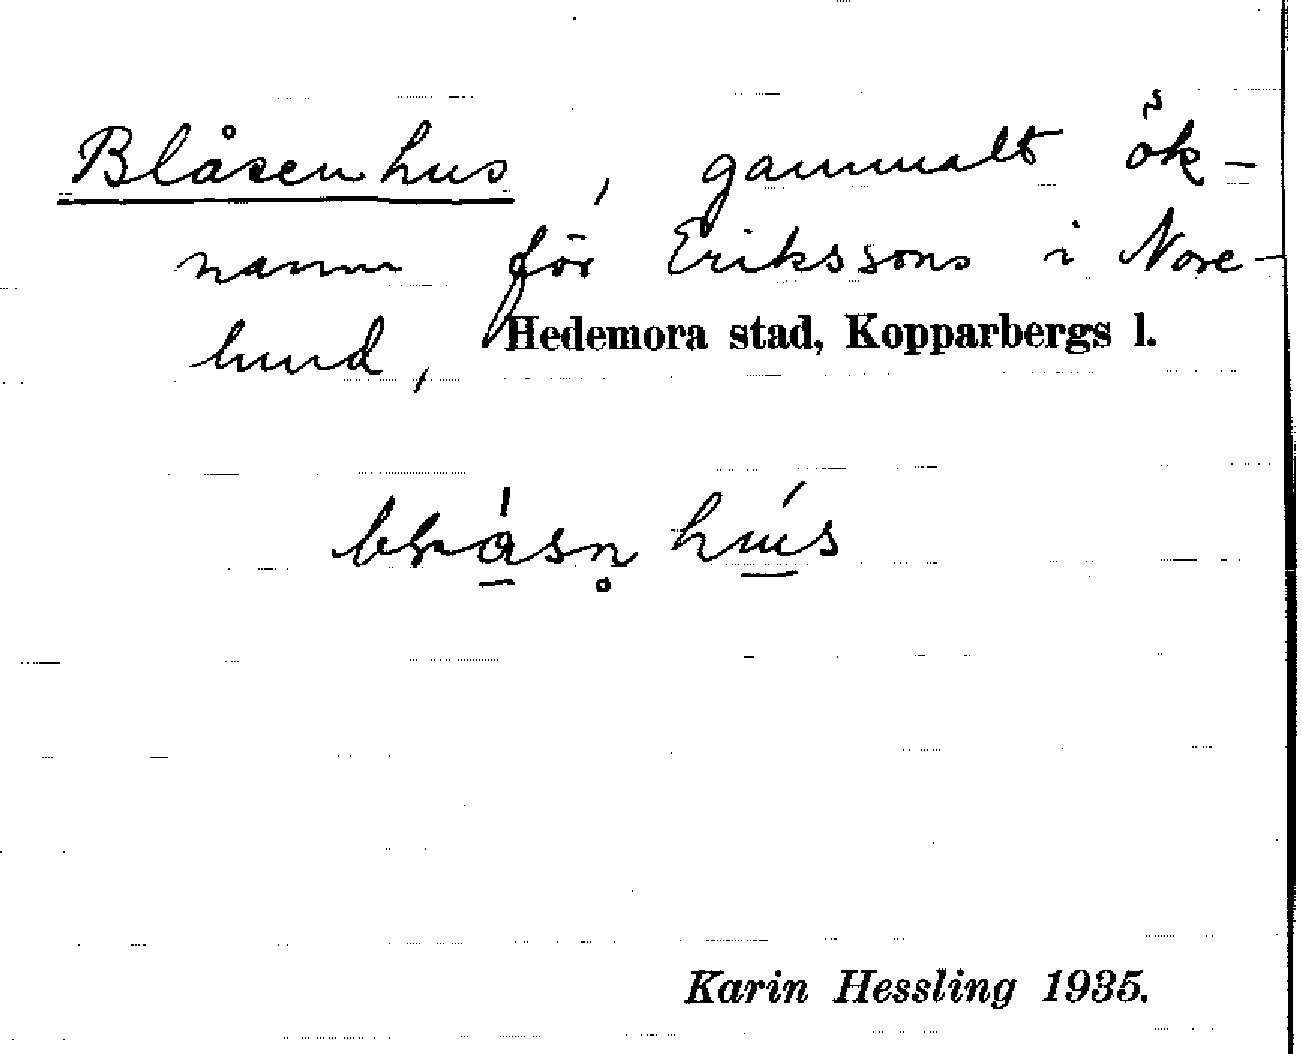 Blåsenhus, gammalt ök-
namn för Erikssons i Nore-
lund, Hedemora stad, Kopparbergs l.
Karin Hessling 1935.